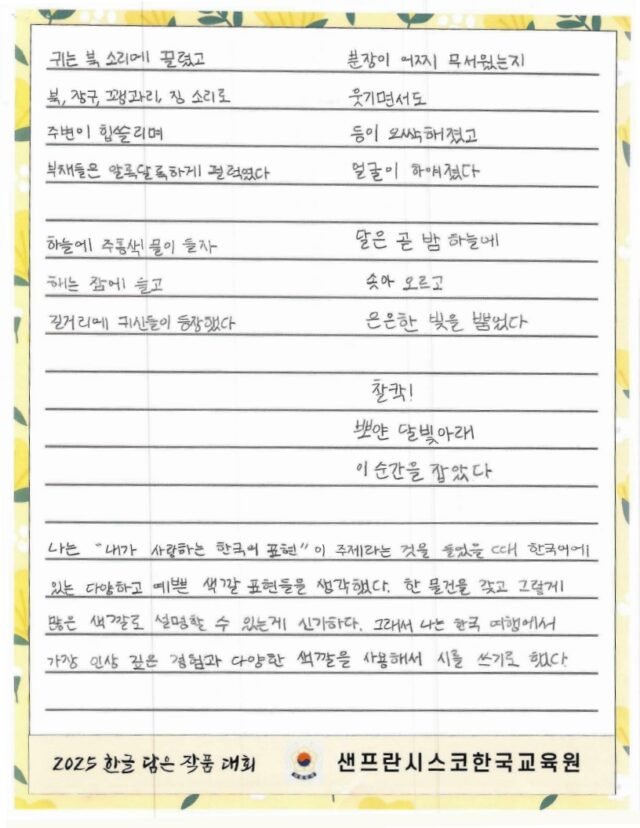 귀는 북 소리에 끌렸고
북, 장구, 꽹과리, 징 소리로
주변이 휩쓸리며
부채들은 알록달록하게 펄럭였다
하늘에 주홍색 물이 들자
해는 잠에 들고
길거리에 귀신들이 등장했다
분장이 어찌 무서웠는지
웃기면서도
등이 오싹해졌고
얼굴이 하얘졌다
달은 곧 밤 하늘에
솟아 오르고
은은한 빛을 뿜었다
찰칵!
뽀얀 달빛아래
이 순간을 잡았다
나는 "내가 사랑하는 한국어 표현"이 주제라는 것을 들었을 때 한국어에
있는 다양하고 예쁜 색깔 표현들을 생각했다. 한 물건을 갖고 그렇게
많은 색깔로 설명할 수 있는게 신기하다. 그래서 나는 한국 여행에서
가장 인상 깊은 경험과 다양한 색깔을 사용해서 시를 쓰기로 했다.
2025 한글 담은 작품 대회
샌프란시스코한국교육원